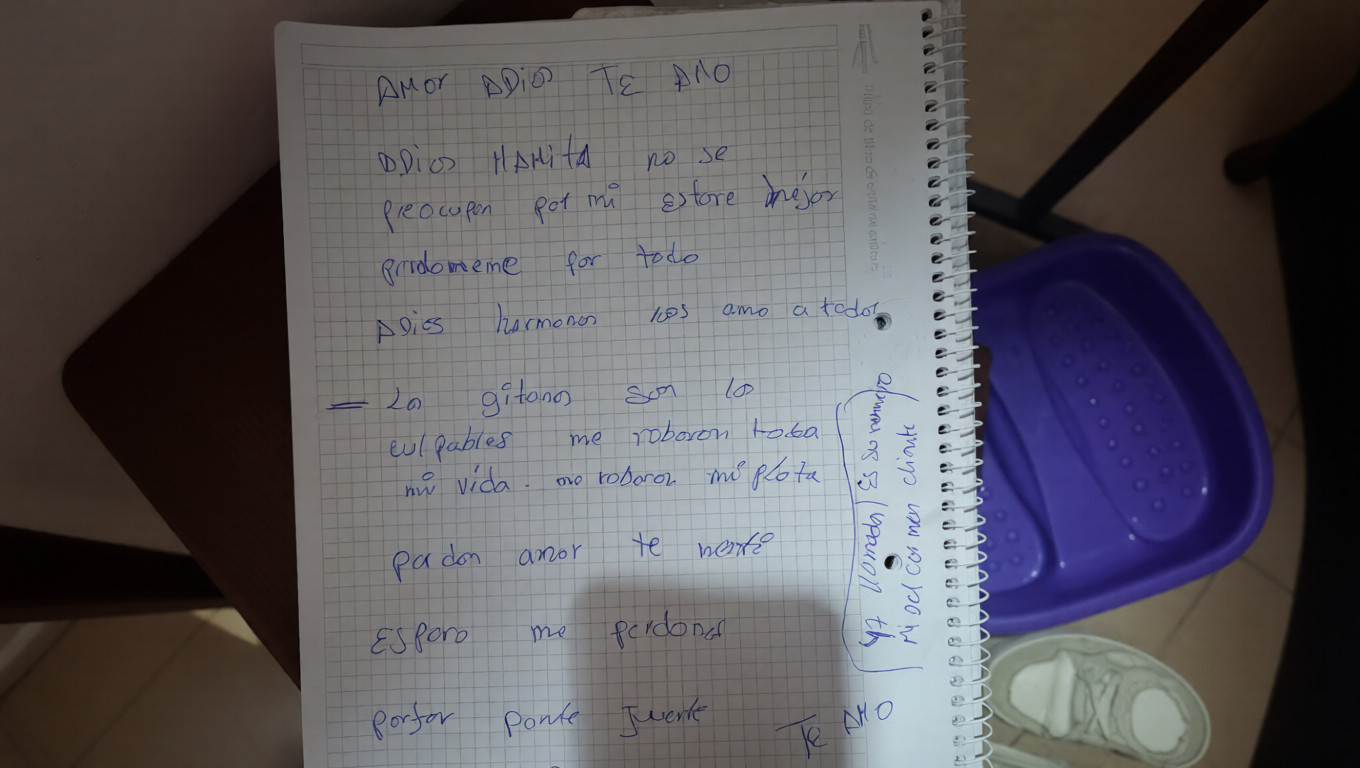 AMOR ADios TE AMO
ADios MAMita no se
preocupen por mi estore mejor
prrdomeme por todo
ADios hermonos los amo a todos
Los gitonos son los
culpables me roboron toda
mi vida. me roboron mi plota
padon amor te menti
Esporo me perdones
porfor ponte fuerte TE AMO
47 llomodos Es un numero